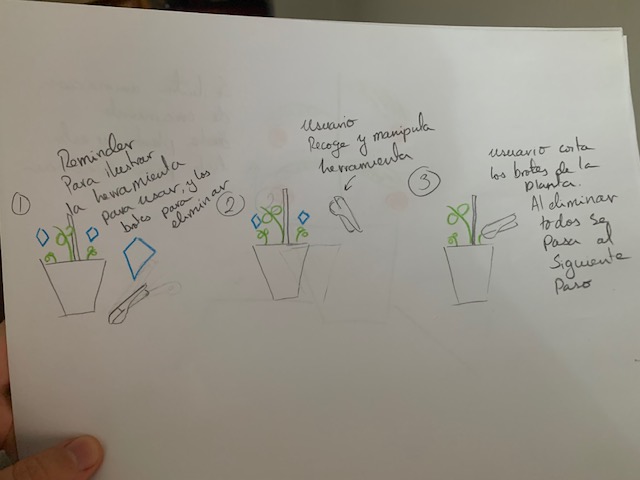 ①
Reminder
Para ilustrar
la herramienta
para usar, y los
botes para
eliminar
②
Usuario
Recoge y manipula
herramienta
③
usuario corta
los brotes de la
planta.
Al eliminar
todos se
pasa al
siguiente
paso